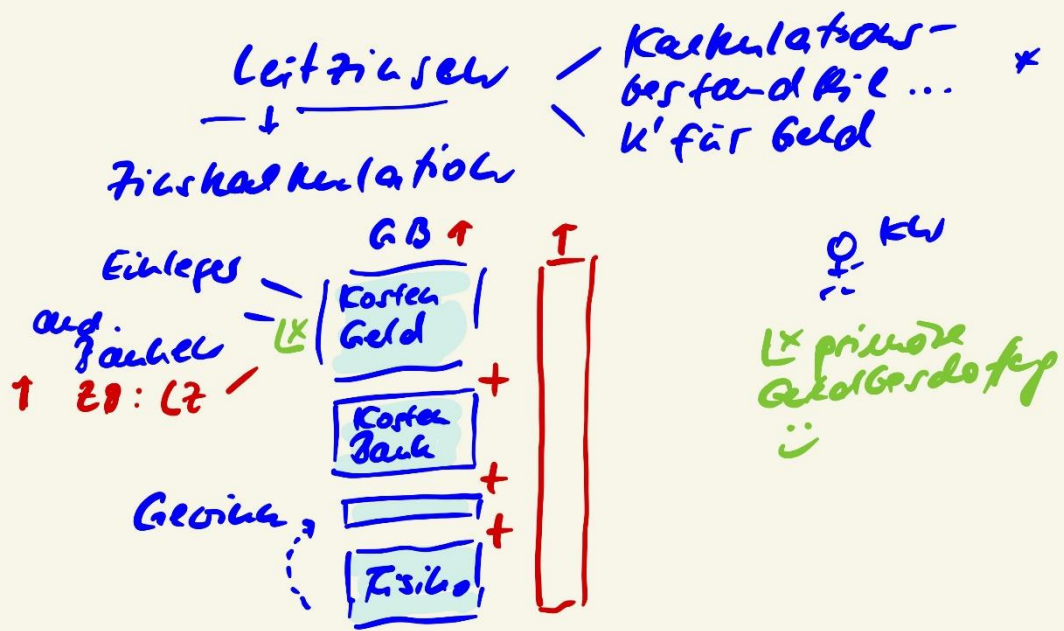 Leitzinsen
Kalkulations-
bestandteil ... *
K' für Geld
Zinskalkulation
GB ↑ ↑
Einleger
Kosten
Geld
and.
Banken
↑ ZB: LZ
+
Kosten
Bank
+
Gewinn
+
Risiko
primäre
Geldbeschaffg